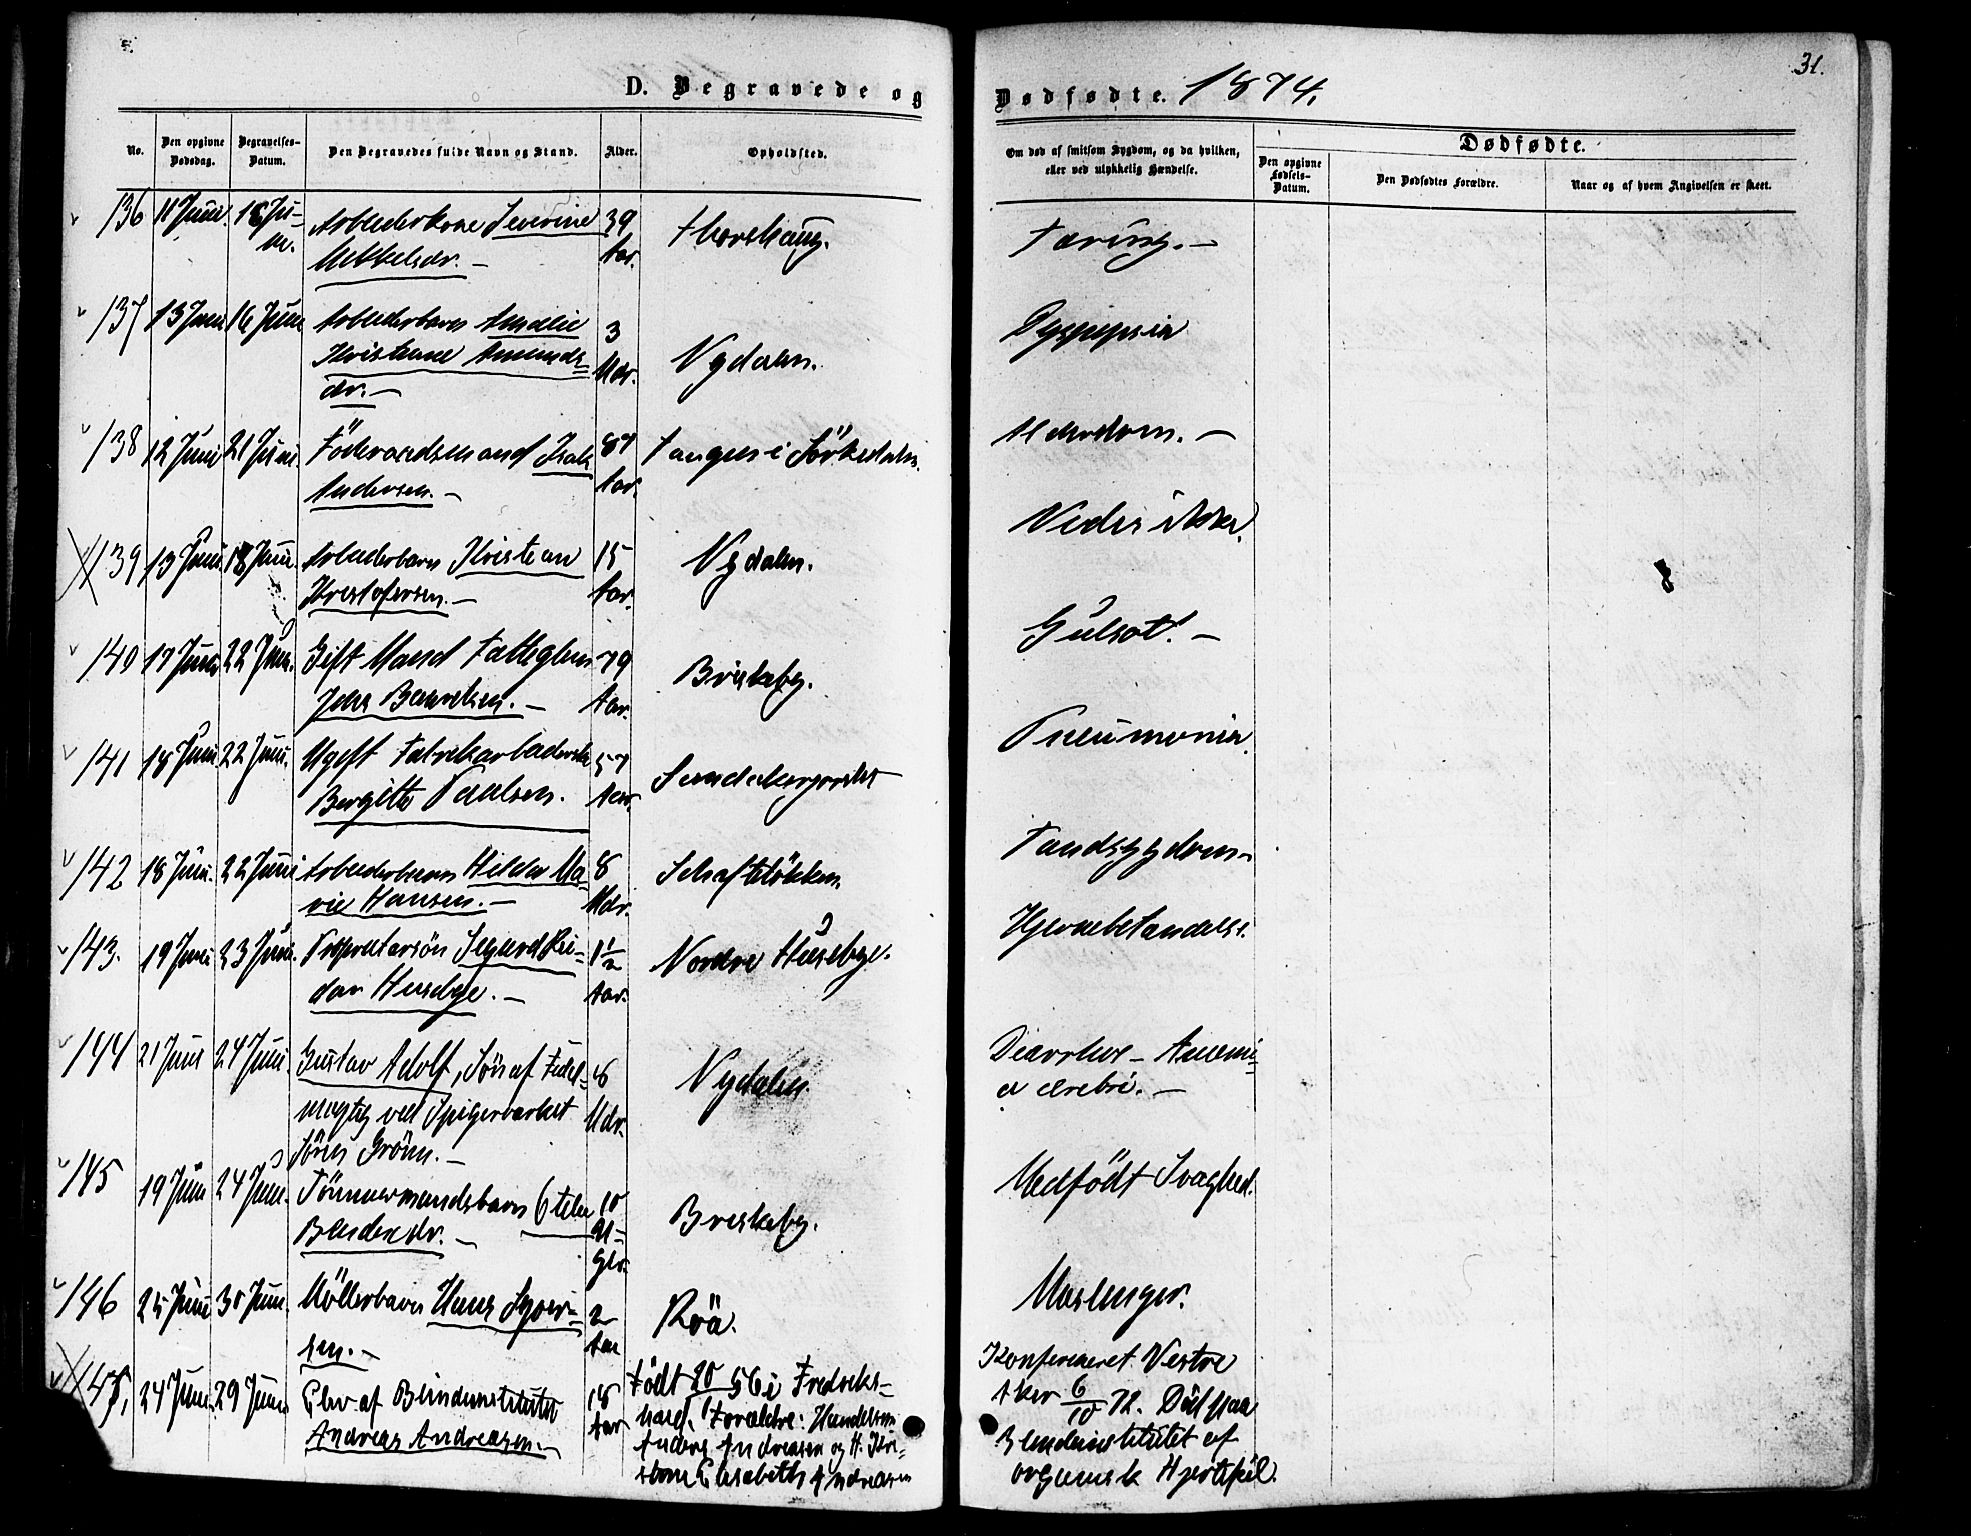 31.
D. Begravede og
Dødfødte. 1874.
No.
Den opgivne Dødsdag.
Begravelses-Datum.
Den Begravedes fulde Navn og Stand.
Alder.
Opholdsted.
Om død af smitsom Sygdom, og da hvilken, eller ved ulykkelig Hændelse.
Dødfødte.
Den opgivne Fødsels-Datum.
Den Dødfødtes Forældre.
Naar og af hvem Angivelsen er skeet.
136 11 Juni. Arbeiderkone Severine 39 Thorshaug. Tæring. —
Mikkelsdr. — Aar.
137 13 Juni 16 Juni Arbeiderbarn Amalie 3 Nydalen. Dyspepsia
Kristiane Amunds- Mdr.
dr. —
138 12 Juni 21 Juni Föderaadsmand Isak 87 Tangen i Sörkedalen. Alderdom. —
Andersen. — Aar.
139 13 Juni 18 Juni. Arbeiderbarn Kristian 15 Nydalen. Vides ikke.
Kristofersen. — Aar.
140 17 Juni 22 Juni. Gift Mand Fattiglem 79 Briskeby. Gulsot. —
Jens — Aar.
141 18 Juni 22 Juni. Ugift Fabrikarbeiderske 57 Pneumonia.
Bergitte Paulsen. Aar.
142 18 Juni. 22 Juni Arbeiderbarn Hilda Ma- 8 Schafteløkken Tandsygdom
rie Hansen. — Mdr.
143. 19 Juni 23 Juni. Proprietærsön Sigurd Rei- 1 1/2 Nordre Husebye. Hjernebetændelse.
dar Husebye. — Aar.
144 21 Juni 24 Juni. Gustav Adolf, Sön af Fuld- Nydalen Diarrhoe - Anæmi-
mægtig ved Spigerverket Mdr. a cerebri. —
Sören Grönn. —
145 19 Juni 24 Juni. Tömmermandsbarn 10 Briskeby. Medfödt Svaghed.
—
146 25 Juni 30 Juni. Möllerbarn Hans Syver- 2 Röa. Meslinger.
sen. — Aar
147, 24 Juni. 29 Juni Elev af Blindeinstitutet 18 Född 20/1 56 i Fredriks- Konfirmeret Vestre
Andreas Andreasen. — Aar hald. Forældre: Aker 6/10 72. Död paa
Anders Andreasen og H. Kri- Blindeinstitutet af
stine Elisabeth Andreasen organisk Hjertefeil.